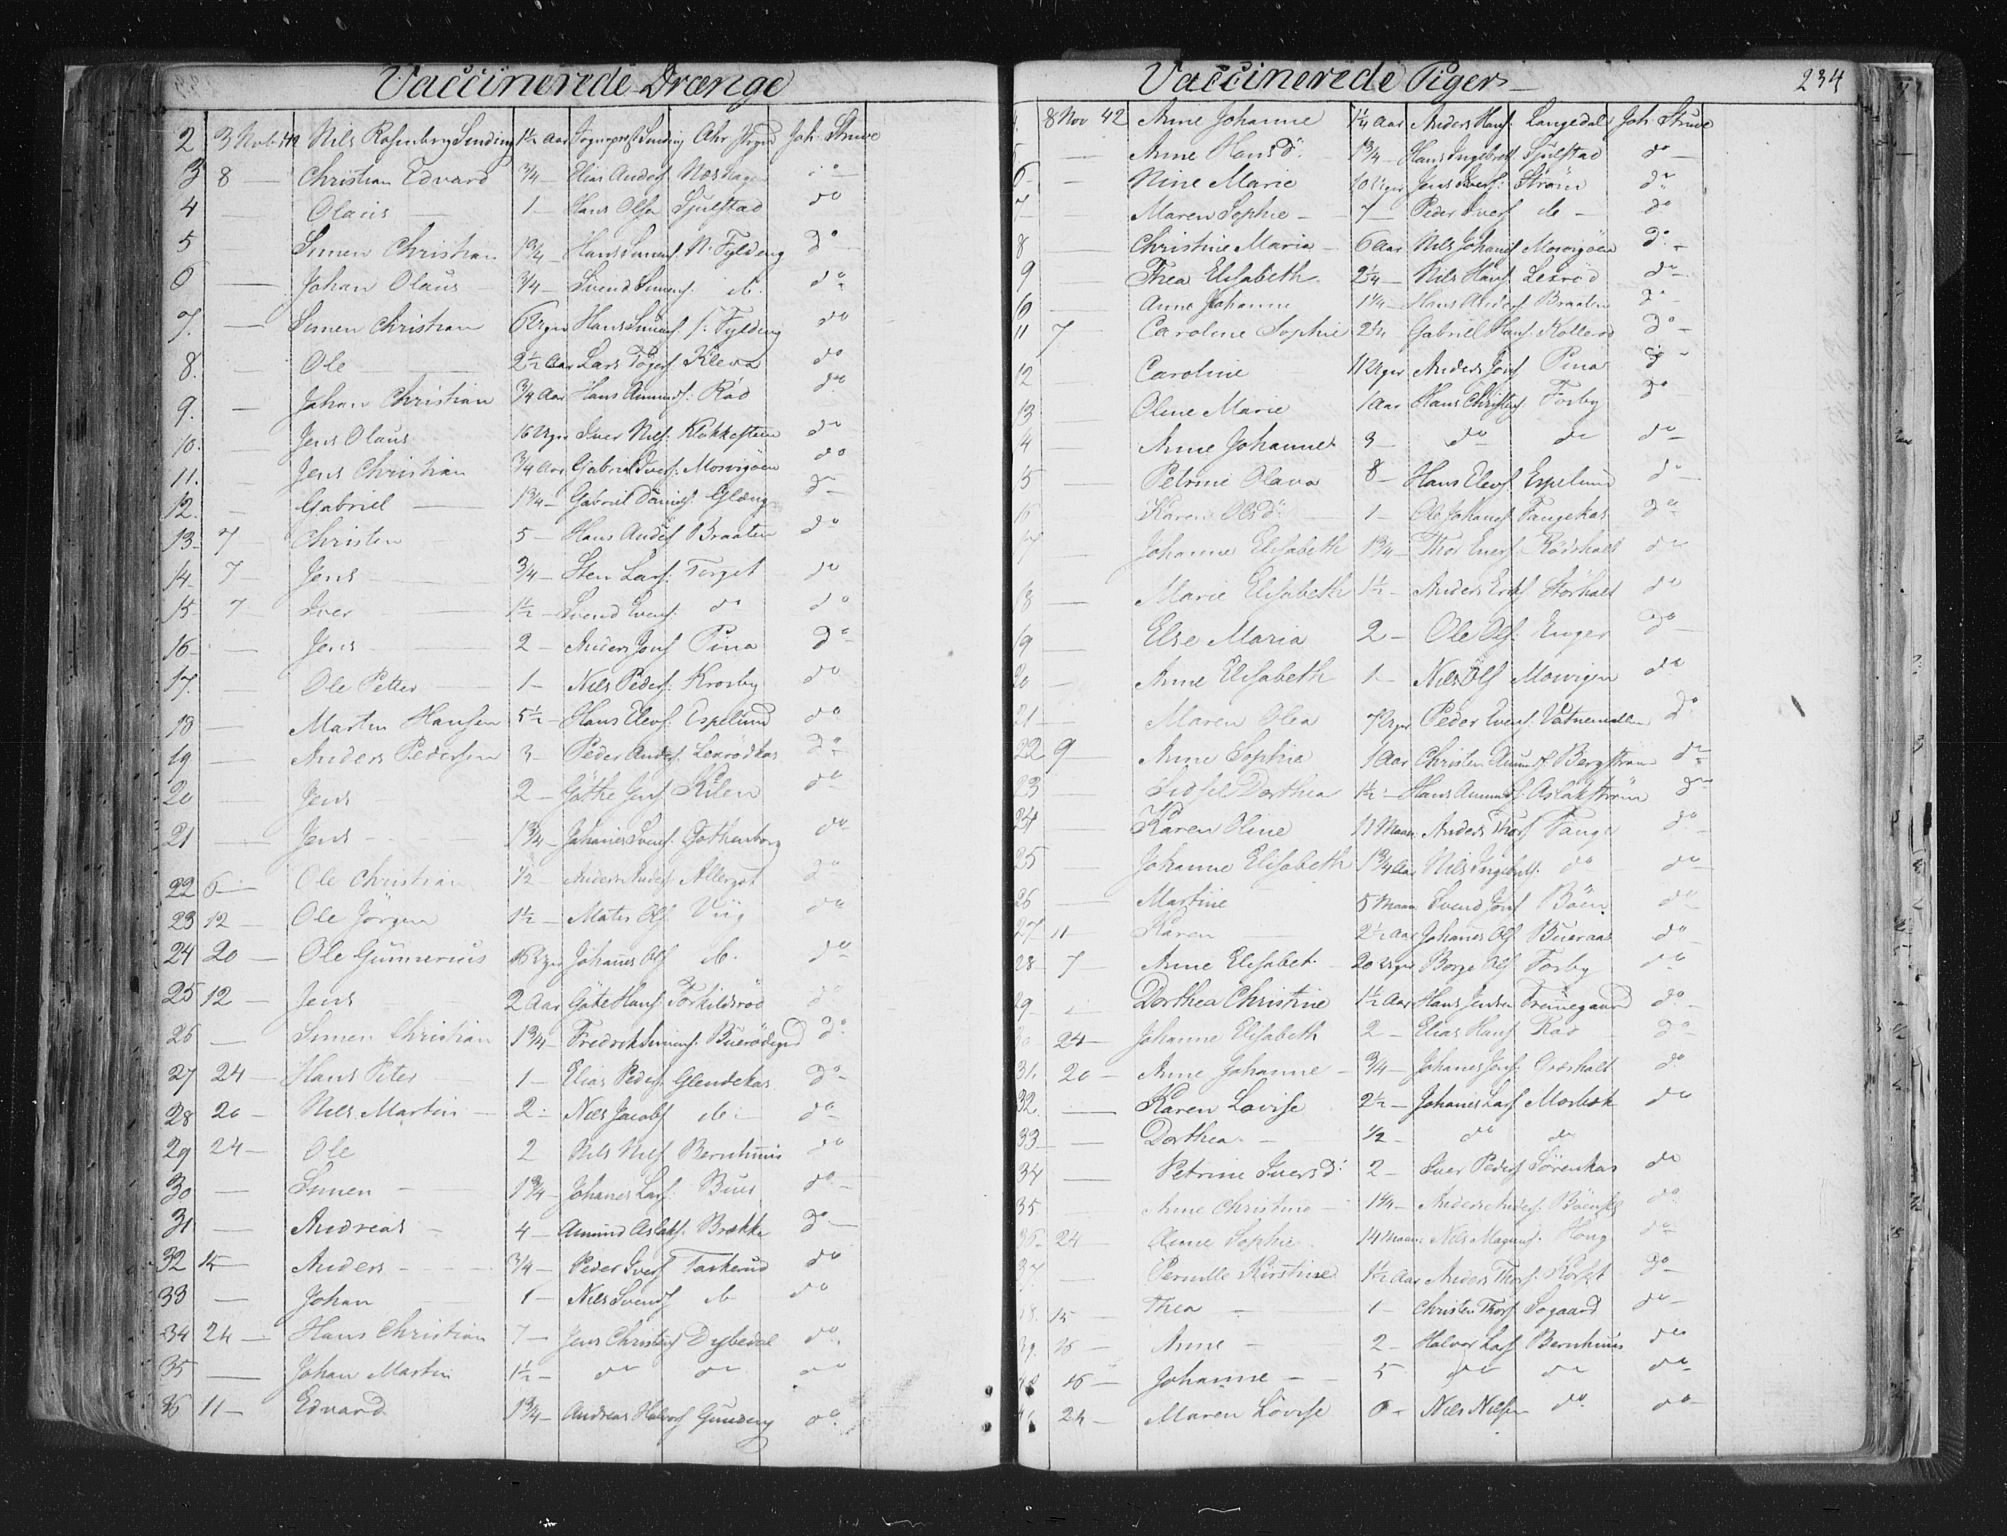 Vaccinerede Drænge
2 3 Novb 42 Nils Rosenberg Sinding 1½ Aar Sognepræst Sinding Joh. Struve
3 8 — Christian Edvard ¾ — Elias Anders. Næshage do
4 — Olaus 1 — Hans Olsen Sjulstad do
5 — Simen Christian 1¾ — Hans Simens. N. Fylding do
6 — Johan Olaus ¾ — Svend Simens. do. do
7. — Simen Christian 6 Uger Hans Simens. S. Fylding do
8. — Ole 2½ Aar Lars Tøgers. Kleva do
9. — Johan Christian ¾ Aar Hans Amunds. Röd do
10. Jens Olaus 16 Uger Iver Nils. Klokkesteen do
11. Jens Christian ¾ Aar Gabriel Ivers. Mosvigöen do
12. — Gabriel 1¾ — Gabriel Daniels. Glæng do
13 7 Christen 5 — Hans Anders. Braaten do
14. 7 Jens ¾ — Sten Lars. Torget do
15 7 — Iver 1½ — Svend Evens. do do
16 Jens 2 — Anders Jons. Pina do
17. — Ole Petter 1 — Nils Peders. Krosby do
18 — Martin Hansen 5½ — Hans Elevs. Espelund do
19 — Anders Pedersen 3 — Peder Anders. Lexrödkas do
20 — Jens 2 — Göthe Jens. Kilen do
21 — Jens 1¾ — Johannes Svens. Gothenborg do
22 6 — Ole Christian ½ — Anders Anders. Allergot do
23 12 — Ole Jörgen 1½ — Mates Ols. Viig do
24 20 — Ole Gunnerius 16 Uger Johanes Ols. do. do
25 12 — Jens 2 Aar Göte Hans. Torkildsröd do
26 — Simen Christian 1¾ — Fredrik Simens. Buerödegrd do
27 24 — Hans Peter 1 — Elias Peders. Glendekas do
28 20 — Nils Martin 2 — Niels Jacobs. do do
29 24 — Ole 2 Nils Nils. Bernhuus do
30 — Simen 1¾ — Johanes Lars. Buer do
31 — Andreas 4 — Amund Aslaks. Brække do
32 15 — Anders ¾ — Peder Ivers. Taskerud do
33 — Johan 1 — Nils Svends. do do
34 24 — Hans Christian 7 — Jens Christens. Dybedal do
35 — Johan Martin 1½ — do do do
36 11 — Edvard 1¾ — Andreas Halvors. Gunneng do
Vaccinerede Piger 234
8 Nov 42 Anne Johanne 1¼ Aar Anders Hans. Langedal Joh. Struve
5 — Anne Hansd. 1¾ — Hans Ingebret. Sjulstad do
6 — Nine Marie 10 Uger Jens Ivers. Ström do
7 — Maren Sophie 7 — Peder Ivers. do — do
8 — Christine Maria 6 Aar Nils Johans. Mosvigöen do
9 Thea Elisabeth 2¼ — Nils Hans. Lexröd do
10 — Anne Johanne 1¼ — Hans Anders. Braaten do
11 7 Caroline Sophie 2¼ Gabriel Hans. Kolleröd do
12 — Caroline 11 Uger Anders Jons. Pina do
13 Oline Marie 1 Aar Hans Christens. Torby do
4 — Anne Johanne 3 — do do do
5 — Petrine Olava 8 — Hans Elevs. Espelund do
6 Karen Olsd. 1 — Ole Johans. Tangekas do
17 Johanne Elisabeth 1¾ — Thor Evens. Rödshalt do
18 — Marie Elisabeth 1½ — Anders Eriks. Störhalt do
19 Else Maria 2 — Ole Ols. Enger do
20 — Anne Elisabeth 1 — Nils Ols. Mosvigen do
21 — Maren Olea 7 Uger Peder Evens. Vatnemöllen do
22 9 Anne Sophie 1 Aar Christen Amunds. Bergström do
23 — Sidsel Dorthea 1½ — Hans Amunds. Aslakström do
24 Karen Oline 11 Maan. Anders Thors. Tange do
25 Johanne Elisabeth 1¾ Aar Nils Ingebrets. do do
26 Martine 5 Maan. Svend Jons. Böen do
27 11 Karen 2½ Aar Johanes Ols. Bueraas do
28 7 — Anne Elisabet 20 Uger Borge Ols. Torby do
29 Dorthea Christine 1½ Aar Hans Jensen Trinnegaard do
24 — Johanne Elisabeth 2 — Elias Hans. Röd do
31. 20 — Anne Johanne ¾ — Johanes Jens. Oræshalt do
32. — Karen Lovise 2½ — Johanes Lars. Morbæk do
33 — Dorthea ½ — do do
34 Petrine Iversd. 2 — Iver Peders. Sörenkas do
35 — Anne Christine 1¼ — Anders Anders. Böensk. do
36 24 — Anne Sophie 14 Maan. Nils Magnus. Houg do
37 — Pernille Kirstine 1½ Aar Anders Thors. Korset do
15 — Thea — 1 — Christen Thors. Sogaard do
39. 16 — Anne — 2 — Halvor Lars. Bernhuus do
16 — Johanne — 5 do do do
24 — Maren Lovise 6 — Niels Nielsen do do